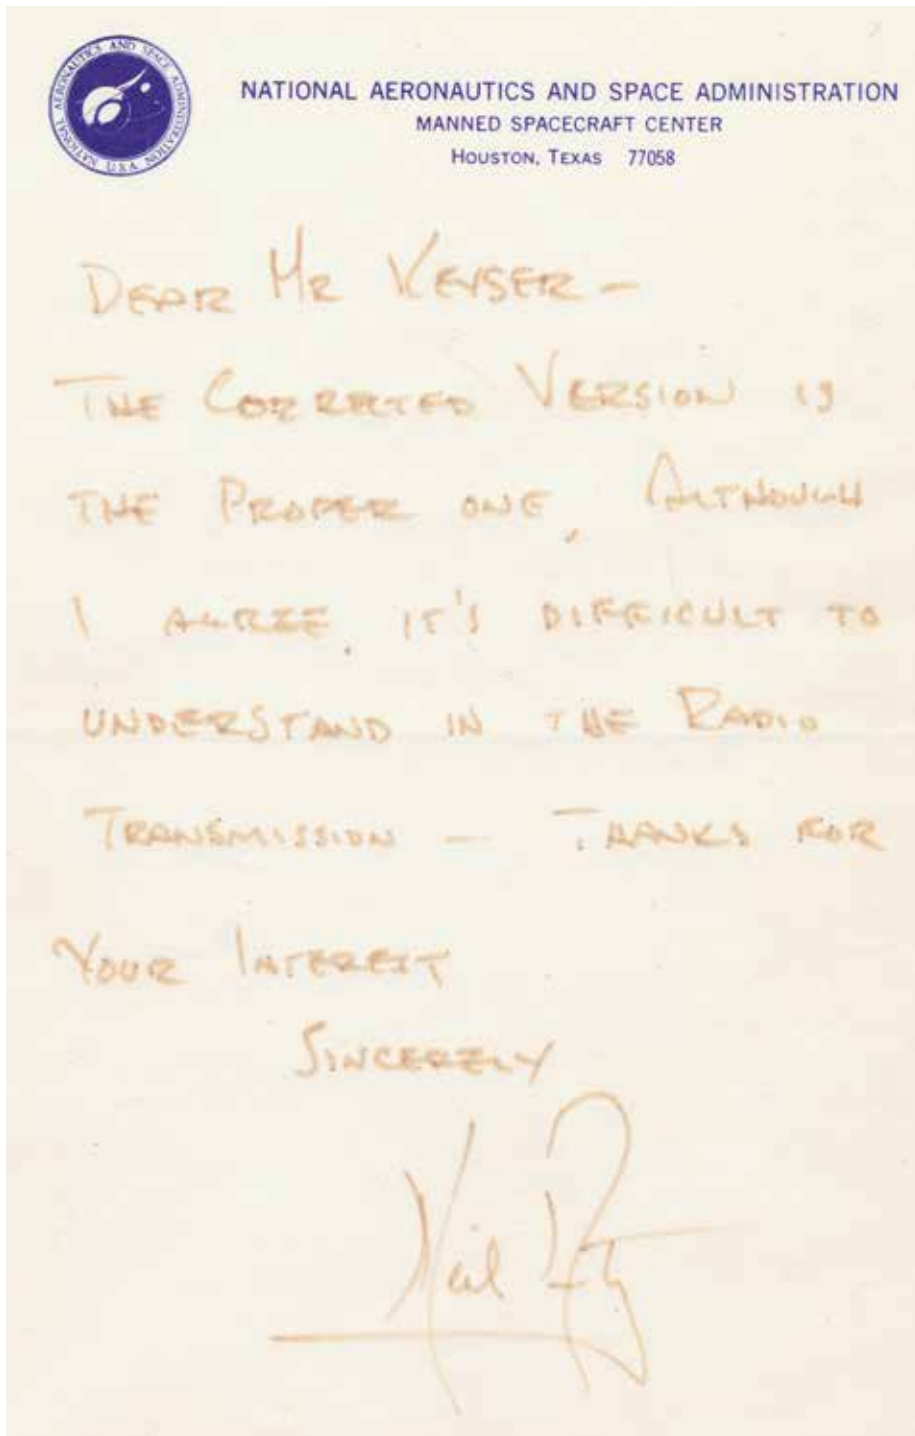 NATIONAL AERONAUTICS AND SPACE ADMINISTRATION U.S.A.
NATIONAL AERONAUTICS AND SPACE ADMINISTRATION
MANNED SPACECRAFT CENTER
HOUSTON, TEXAS 77058
DEAR MR KEYSER —
THE CORRECTED VERSION IS
THE PROPER ONE, ALTHOUGH
I AGREE, IT'S DIFFICULT TO
UNDERSTAND IN THE RADIO
TRANSMISSION — THANKS FOR
YOUR INTEREST
SINCERELY
Neil